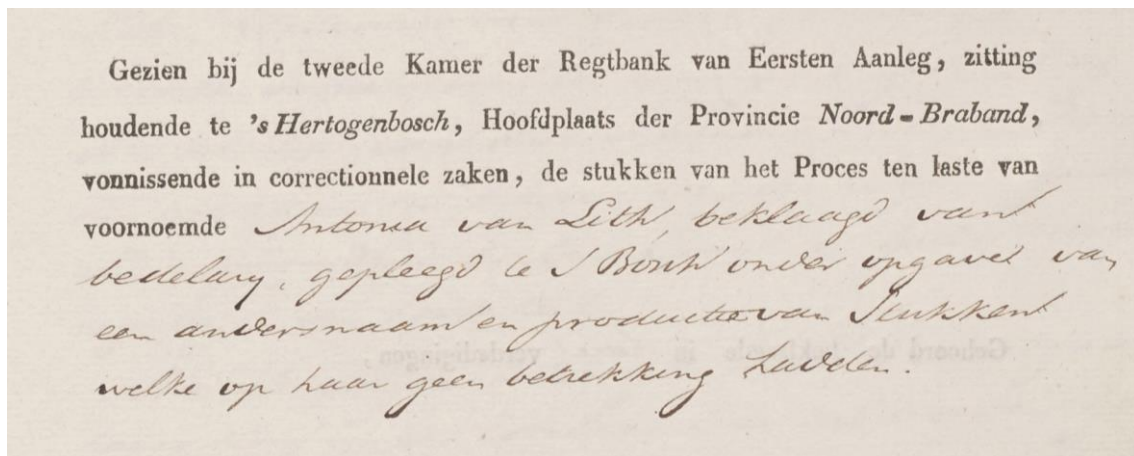 Gezien bij de tweede Kamer der Regtbank van Eersten Aanleg, zitting
houdende te 's Hertogenbosch, Hoofdplaats der Provincie Noord-Braband,
vonnissende in correctionnele zaken, de stukken van het Proces ten laste van
voornoemde Antonia van Lith, beklaagd van
bedelary, gepleegd te s Bosch onder opgave van
een andersnaam en productie van Stukken
welke op haar geen betrekking hadden.